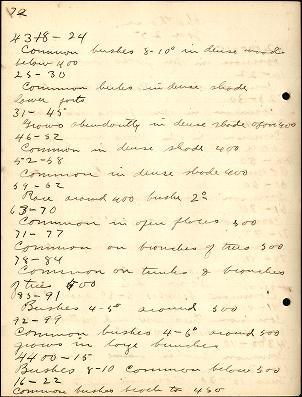 72
4318-24
Common bushes 8-10° in dense
below 400
25-30
Common in dense shade
lower parts
31-45
Grows abundantly in dense shade upon 400
46-52
Common in dense shade 400
52-58
Common in dense shade 400
59-62
Rare around 400 bushes 2°
63-70
Common in open places 500
71-77
Common on branches of trees 500
78-84
Common on trunks & branches
of trees 500
85-91
Bushes 4-5° around 500
92-99
Common bushes 4-6° around 500
grows in large bunches
4400-15
Bushes 8-10 Common below 500
16-22
Common bushes to 450